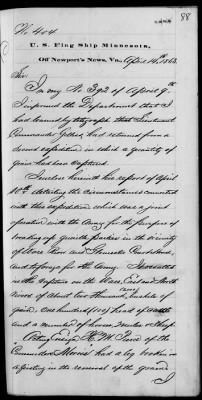 No. 404
88
U. S. Flag Ship Minnesota,
Off Newport's News, Va., April 14th 1863.
Sir:
In my No. 392 of April 9th
I informed the Department that I
had learned by telegraph that Lieutenant
Commander Gillis, had returned from a
second expedition in which a quantity of
grain had been captured.
I enclose herewith his report of April
10th detailing the circumstances connected
with this expedition which was a joint
operation with the Army for the purpose of
breaking up guerilla parties in the vicinity
of Ware River and Gloucester Court House,
and to forage for the Army.
in the expedition on the Ware, East and North
rivers of about two thousand bushels of
grain, one hundred (100) head of cattle
and a number of horses, mules & sheep.
Acting Ensign
Commodore Morris had a leg broken in
assisting in the removal of the grain
I